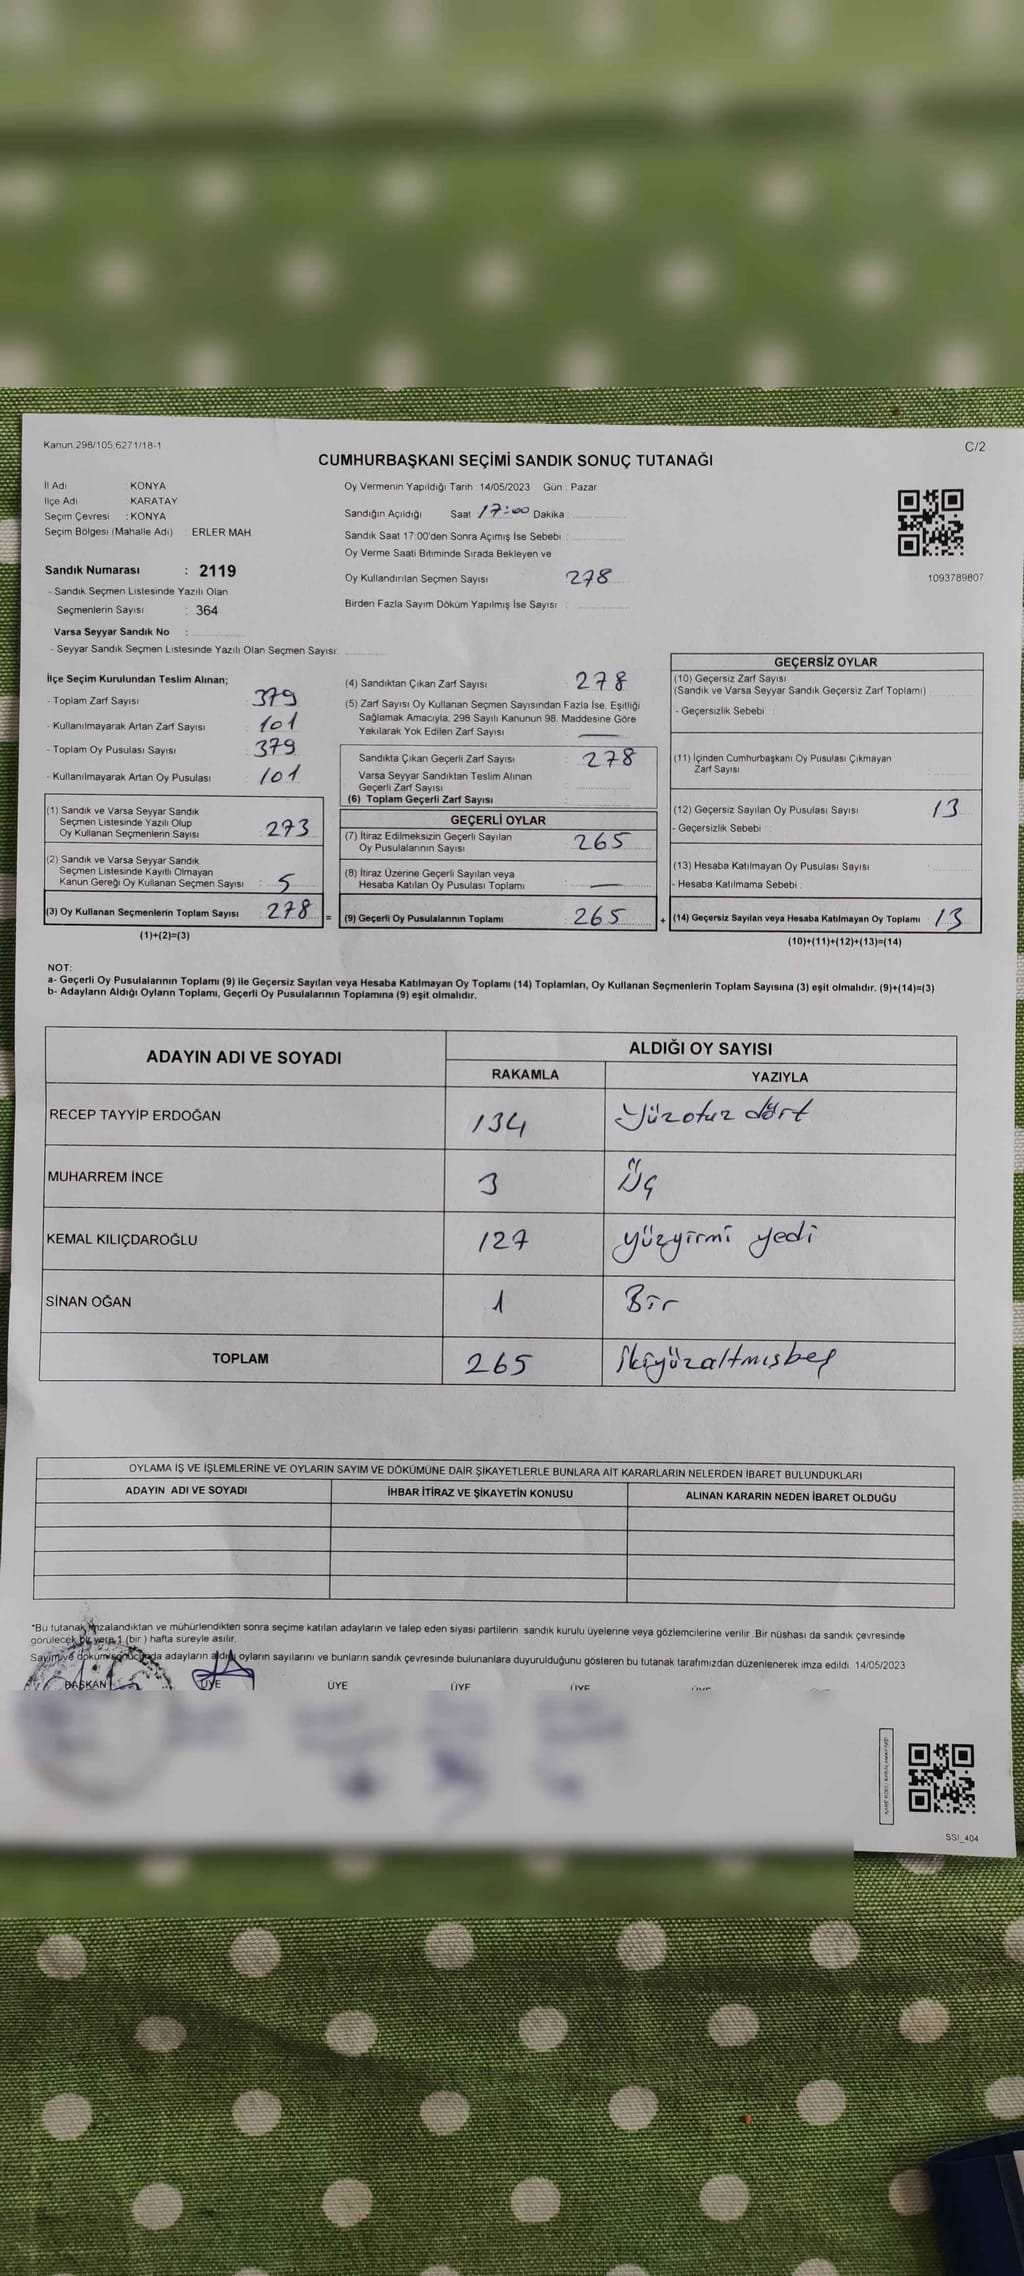 Kanun:298/105,6271/18-1
C/2
CUMHURBAŞKANI SEÇİMİ SANDIK SONUÇ TUTANAĞI
İl Adı KONYA
İlçe Adı KARATAY
Seçim Çevresi : KONYA
Seçim Bölgesi (Mahalle Adı) : ERLER MAH.
Sandık Numarası : 2119
- Sandık Seçmen Listesinde Yazılı Olan
Seçmenlerin Sayısı : 364
Varsa Seyyar Sandık No :
- Seyyar Sandık Seçmen Listesinde Yazılı Olan Seçmen Sayısı:
Oy Vermenin Yapıldığı Tarih : 14/05/2023 Gün : Pazar
Sandığın Açıldığı Saat 17:00 Dakika
Sandık Saat 17:00'den Sonra Açımış İse Sebebi :
Oy Verme Saati Bitiminde Sırada Bekleyen ve
Oy Kullandırılan Seçmen Sayısı 278
Birden Fazla Sayım Döküm Yapılmış İse Sayısı :
1093789807
İlçe Seçim Kurulundan Teslim Alınan;
- Toplam Zarf Sayısı 379
- Kullanılmayarak Artan Zarf Sayısı 101
- Toplam Oy Pusulası Sayısı 379
- Kullanılmayarak Artan Oy Pusulası 101
(1) Sandık ve Varsa Seyyar Sandık
Seçmen Listesinde Yazılı Olup
Oy Kullanan Seçmenlerin Sayısı : 273
(2) Sandık ve Varsa Seyyar Sandık
Seçmen Listesinde Kayıtlı Olmayan
Kanun Gereği Oy Kullanan Seçmen Sayısı : 5
(3) Oy Kullanan Seçmenlerin Toplam Sayısı : 278 =
(1)+(2)=(3)
(4) Sandıktan Çıkan Zarf Sayısı : 278
(5) Zarf Sayısı Oy Kullanan Seçmen Sayısından Fazla İse, Eşitliği
Sağlamak Amacıyla; 298 Sayılı Kanunun 98. Maddesine Göre
Yakılarak Yok Edilen Zarf Sayısı : —
Sandıkta Çıkan Geçerli Zarf Sayısı : 278
Varsa Seyyar Sandıktan Teslim Alınan
Geçerli Zarf Sayısı :
(6) Toplam Geçerli Zarf Sayısı :
GEÇERLİ OYLAR
(7) İtiraz Edilmeksizin Geçerli Sayılan
Oy Pusulalarının Sayısı : 265
(8) İtiraz Üzerine Geçerli Sayılan veya
Hesaba Katılan Oy Pusulası Toplamı : —
(9) Geçerli Oy Pusulalarının Toplamı : 265 +
GEÇERSİZ OYLAR
(10) Geçersiz Zarf Sayısı
(Sandık ve Varsa Seyyar Sandık Geçersiz Zarf Toplamı)
- Geçersizlik Sebebi :
(11) İçinden Cumhurbaşkanı Oy Pusulası Çıkmayan
Zarf Sayısı
(12) Geçersiz Sayılan Oy Pusulası Sayısı 13
- Geçersizlik Sebebi :
(13) Hesaba Katılmayan Oy Pusulası Sayısı
- Hesaba Katılmama Sebebi :
(14) Geçersiz Sayılan veya Hesaba Katılmayan Oy Toplamı : 13
(10)+(11)+(12)+(13)=(14)
NOT:
a- Geçerli Oy Pusulalarının Toplamı (9) ile Geçersiz Sayılan veya Hesaba Katılmayan Oy Toplamı (14) Toplamları, Oy Kullanan Seçmenlerin Toplam Sayısına (3) eşit olmalıdır. (9)+(14)=(3)
b- Adayların Aldığı Oyların Toplamı, Geçerli Oy Pusulalarının Toplamına (9) eşit olmalıdır.
ADAYIN ADI VE SOYADI ALDIĞI OY SAYISI
RAKAMLA YAZIYLA
RECEP TAYYİP ERDOĞAN 134 Yüzotuz dört
MUHARREM İNCE 3 Üç
KEMAL KILIÇDAROĞLU 127 yüzyirmi yedi
SİNAN OĞAN 1 Bir
TOPLAM 265 İkiyüzaltmışbeş
OYLAMA İŞ VE İŞLEMLERİNE VE OYLARIN SAYIM VE DÖKÜMÜNE DAİR ŞİKAYETLERLE BUNLARA AİT KARARLARIN NELERDEN İBARET BULUNDUKLARI
ADAYIN ADI VE SOYADI İHBAR İTİRAZ VE ŞİKAYETİN KONUSU ALINAN KARARIN NEDEN İBARET OLDUĞU
*Bu tutanak imzalandıktan ve mühürlendikten sonra seçime katılan adayların ve talep eden siyasi partilerin sandık kurulu üyelerine veya gözlemcilerine verilir. Bir nüshası da sandık çevresinde
görülecek bir yere 1 (bir ) hafta süreyle asılır.
Sayım ve döküm sonucunda adayların aldığı oyların sayılarını ve bunların sandık çevresinde bulunanlara duyurulduğunu gösteren bu tutanak tarafımızdan düzenlenerek imza edildi. 14/05/2023
BAŞKAN ÜYE ÜYE ÜYE ÜYE
SSİ_404